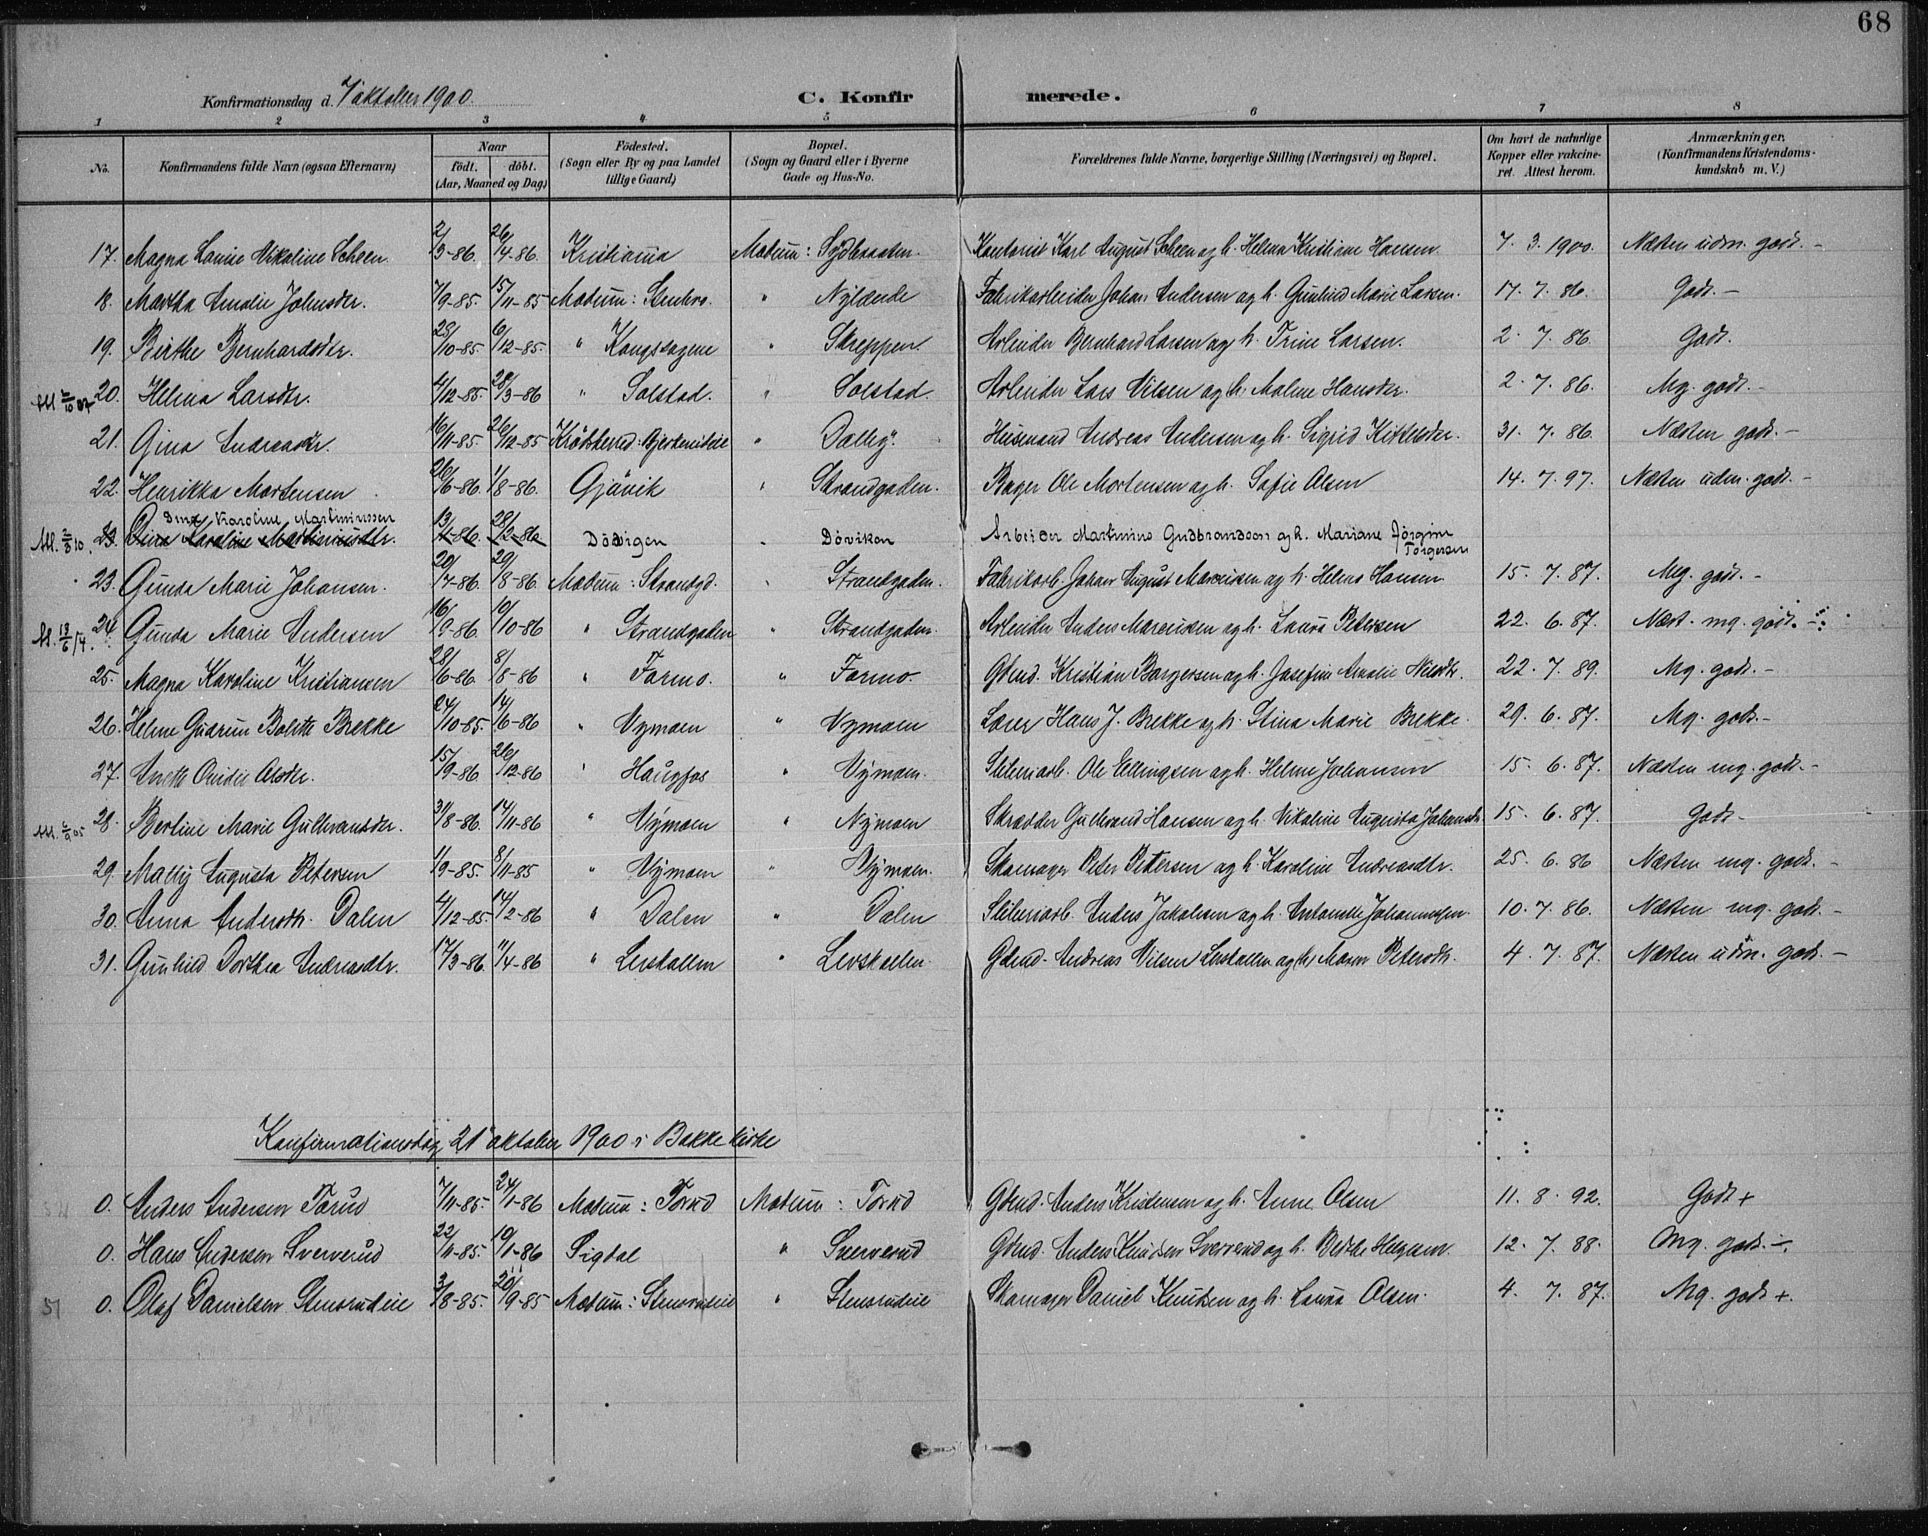 68
Konfirmationsdag d. 7 oktober 1900. C. Konfir merede.
1 2 3 4 5 6 7 8
No. Konfirmandens fulde Navn (ogsaa Efternavn) Naar Födt. döbt. (Aar, Maaned og Dag) Födested. (Sogn eller By og paa Landet tillige Gaard) Bopæl. (Sogn og Gaard eller i Byerne Gade og Hus-No. Forældrenes fulde Navne, borgerlige Stilling (Næringsvei) og Bopæl. Om havt de naturlige Kopper eller vakcineret. Attest herom. Anmærkninger. (Konfirmandens Kristendomskundskab m. V.)
17. Magna Lovise Nikoline Scheen 2/3-86. 26/4-86. Kristiania Modum: Sydbraaten. Kontorist Karl August Scheen og h. Helma Kristiane Hansen 7. 3. 1900. Næsten udm. godt. -
18. Martha Amalie Johnsdtr. 7/9-85. 15/11-85 Modum: Stenbro. " Nylænde Fabrikarbeider Johan Andersen og h. Gunhild Marie Larsen. 17. 7. 86. Godt. -
19. Birthe Bernhardsdtr. 23/10-85. 6/12-85. " Kongssagene " Skreppen. Arbeider Bernhard Larsen og h. Trine Larsen. 2. 7. 86. Godt.
20. Helma Larsdtr. 4/12-85. 28/3-86 " Solstad. " Solstad. Arbeider Lars Nilsen og h. Maline Hansdtr. 2. 7. 86. Mg. godt. -
21. Gina Andreasdtr. 16/11-85. 26/12-85 Krödsherad: Bjerkeniteie " Dalby. Husmand Andreas Andersen og h. Sigrid Kittelsdtr. 31. 7. 86. Næsten godt. -
22. Henrikka Mortensen 26/6-86. 1/8-86. Gjövik " Strandgaden. Bager Ole Mortensen og h. Sofie Olsen 14. 7. 97. Næsten udm. godt. -
Dina Karoline Martiniussen
23. Dina Karoline Martiniusdtr. 13/1-86. 28/2-86. Dövigen " Dövikon Arbeider Martinius Gudbrandsen og h. Mariane Jörgine Torgersen
23. Gunda Marie Johansen. 20/7-86. 29/8-86. Modum: Strandgd. " Strandgaden. Fabrikarb. Johan August Marcusen og h. Helene Hansen 15. 7. 87. Meg. godt. -
24. Gunda Marie Andersen 16/9-86. 10/10-86 " Strandgaden " Strandgaden. Arbeider Anders Marcusen og h. Laura Petersen 22. 6. 87. Næst. mg. godt. -
25. Magna Karoline Kristiansen 28/6-86. 8/8-86 " Formo. " Formo. Gbrd. Kristian Borgersen og h. Josefine Amalie Nilsdtr. 22. 7. 89. Mg. godt. -
26. Helene Gudrun Bolette Brekke 24/10-85. 14/6-86 " Nymoen " Nymoen Lærer Hans J. Brekke og h. Stina Marie Brekke. 29. 6. 87. Mg. godt. -
27. Anette Ovidie Olsdtr. 15/9-86 26/12-86 " Haugfos " Nymoen. Sliberiarb. Ole Ellingsen og h. Helene Johansen 15. 6. 87. Næsten mg. godt. -
28. Berline Marie Gulbrandsdtr. 31/8-86. 14/11-86 " Nymoen " Nymoen Skrædder Gulbrand Hansen og h. Nikoline Augusta Johansdtr. 15. 6. 87. Godt. -
29. Mally Augusta Petersen 1/9-85. 8/11-85 " Nymoen " Nymoen. Skomager Peter Petersen og h. Karoline Andreasdtr. 25. 6. 86 Næsten mg. godt. -
30. Anna Andersdtr. Dalen 4/12-85. 14/2-86 " Dalen " Dalen Sliberiarb. Anders Jakobsen og h. Antonette Johannesen. 10. 7. 86. Næsten mg. godt. -
31. Gunhild Dorthea Andreasdtr. 17/3-86. 11/4-86 " Lerskallen " Lerskallen. Gbrd. Andreas Nilsen Lerskallen og h. Maren Petersdtr. 4. 7. 87. Næsten udm. godt. -
Konfirmationsdag 21 oktober 1900 i Bakke kirke
0. Anders Andersen Torud 7/11-85. 24/1-86 Modum: Torud Modum: Torud Gbrd. Anders Kristensen og h. Anne Olsen 11. 8. 92. Godt +
0. Hans Andersen Sververud 22/11-85. 10/1-86 Sigdal " Sververud Gbrd. Anders Knudsen Sververud og h. Berthe Helgesen. 12. 7. 88. Mg. godt. -.
51 0. Olaf Danielsen Stensrudeie 3/8-85. 20/9-85 Modum: Stensrudeie " Stensrudeie Skomager Daniel Knudsen og h. Laura Olsen. 4. 7. 87. Mg. godt +.